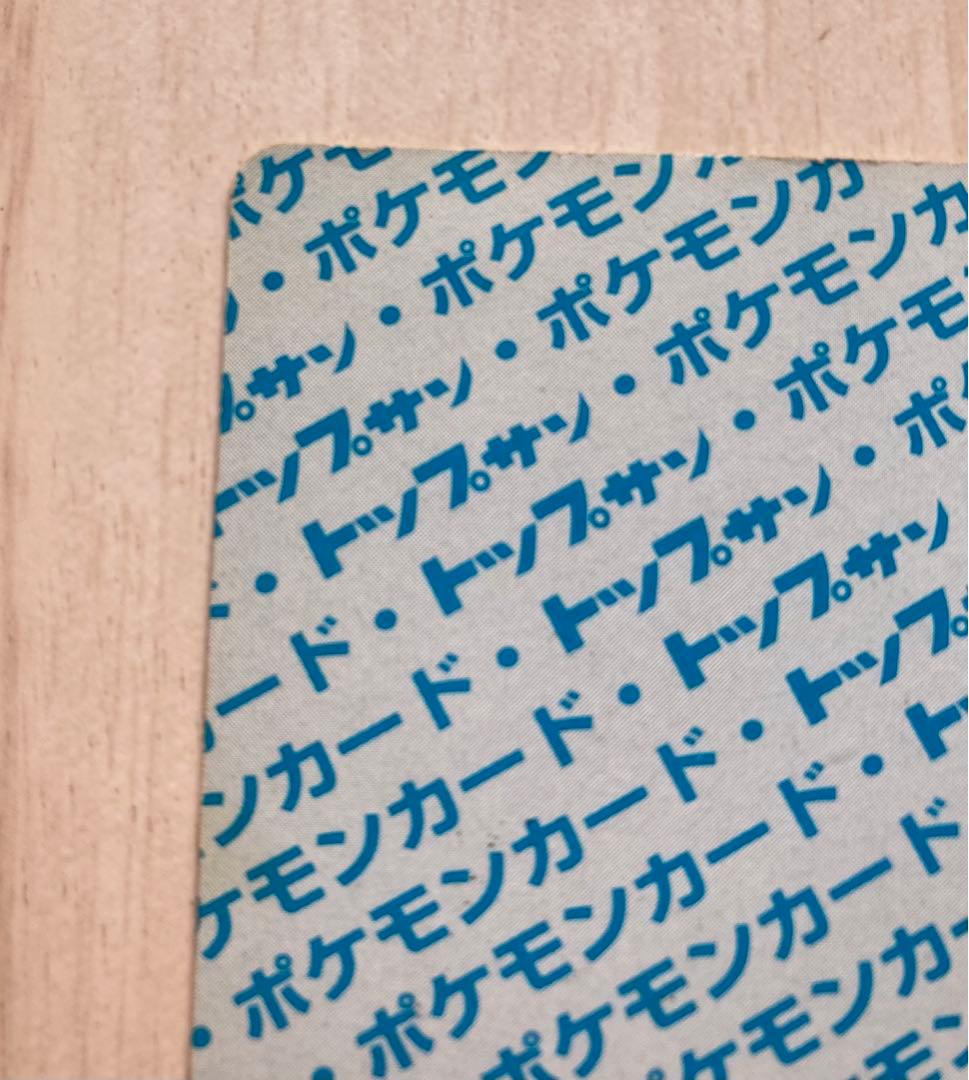 ポケモ
・ポケモン
プサン・ポケモン
トップサン・ポケモンカ
・トップサン・ポケモンカ
ード・トップサン・ポケモ
ンカード・トップサン・ポ
ケモンカード・トップサン
・ポケモンカード・トップ
・ポケモンカード・ト
ポケモンカード
ケモンカー
モ